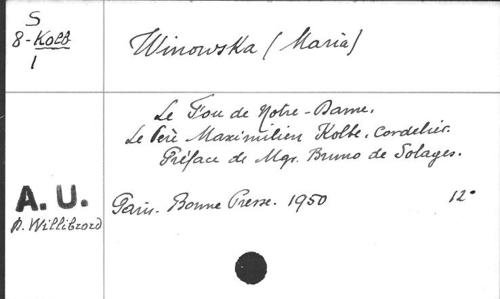 S
8-Kolb
1
Winowska (Maria)
Le Fou de Notre-Dame.
Le Père Maximilien Kolbe, Cordelier.
Préface de Mgr. Bruno de Solages.
A. U.
p. Willibrord
Paris. Bonne Presse. 1950 12°